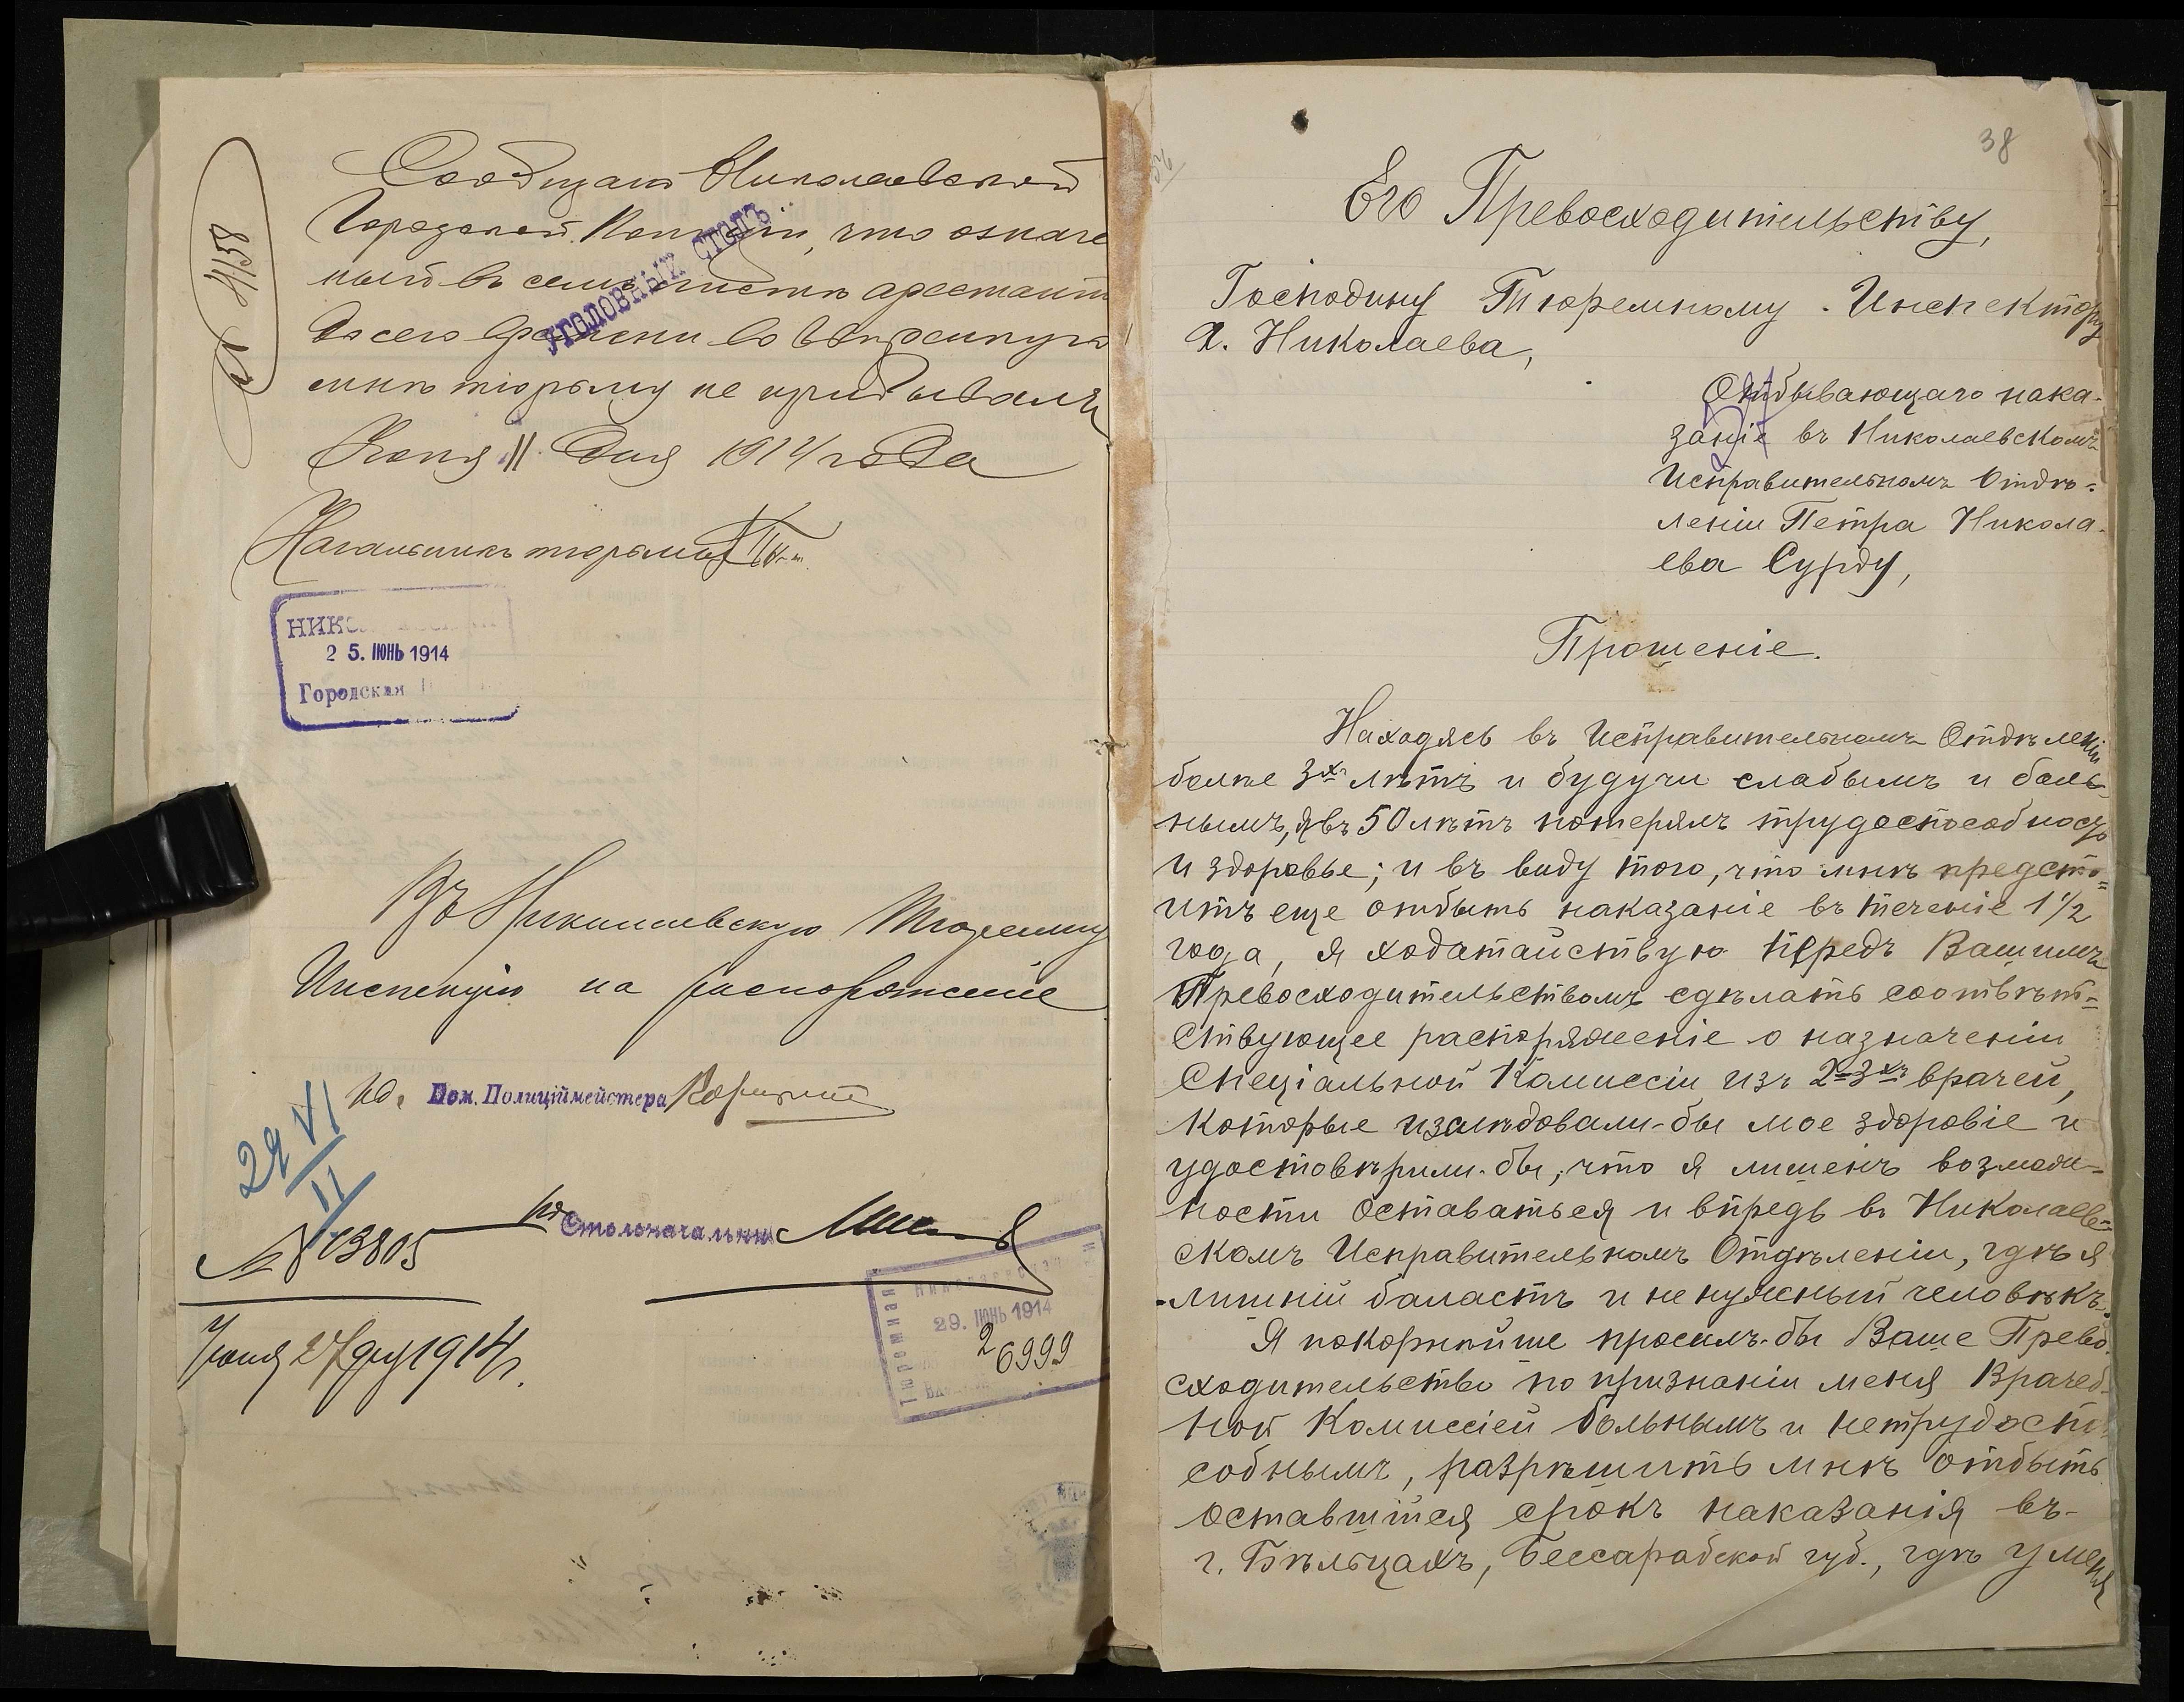 № 4158
Сообщаю Николаевской
Городской Полиціи, что означе
ный въ семъ листѣ арестантъ
до сего времени во ввѣренную
мнѣ тюрьму не прибывалъ
Іюня 11 дня 1914 года
УГОЛОВНЫЙ СТОЛЪ
Начальникъ тюрьмы
НИКО
25. ІЮНЬ 1914
Городская
Въ Николаевскую Тюремную
Инспекцію на распоряженіе
Ид. Пом. Полиціймейстера
29 VI
11
№ 13805
ид Столоначальник
Іюня 27 дня 1914 г.
Николаевская
Тюремная
29. ІЮНЬ 1914
26999
38
Его Превосходительству,
Господину Тюремному Инспектору
г. Николаева,
Отбывающаго нака-
заніе въ Николаевскомъ
Исправительномъ Отдѣ-
леніи Петра Никола-
ева Сурду,
Прошеніе.
Находясь въ Исправительномъ Отдѣленіи
болѣе 3хъ лѣтъ и будучи слабымъ и боль-
нымъ, я въ 50 лѣтъ потерялъ трудоспособность
и здоровье; и въ виду того, что мнѣ предсто=
итъ еще отбыть наказаніе въ теченіе 1 1/2
года, я ходатайствую передъ Вашимъ
Превосходительствомъ сдѣлать соотвѣт=
ствующее распоряженіе о назначеніи
Спеціальной Комиссіи изъ 2-3хъ врачей,
которые изслѣдовали-бы мое здоровіе и
удостовѣрили-бы, что я лишенъ возмож-
ности оставаться и впредь въ Николаев-
скомъ Исправительномъ Отдѣленіи, гдѣ я
-лишній баластъ и не нужный человѣкъ.
Я покорнѣйше просилъ-бы Ваше Прево
сходительство по признаніи меня Врачеб-
ной Комиссіей больнымъ и нетрудоспо
собнымъ, разрѣшить мнѣ отбыть
оставшійся срокъ наказанія въ-
г. Бѣльцахъ, Бессарабской губ., гдѣ у меня